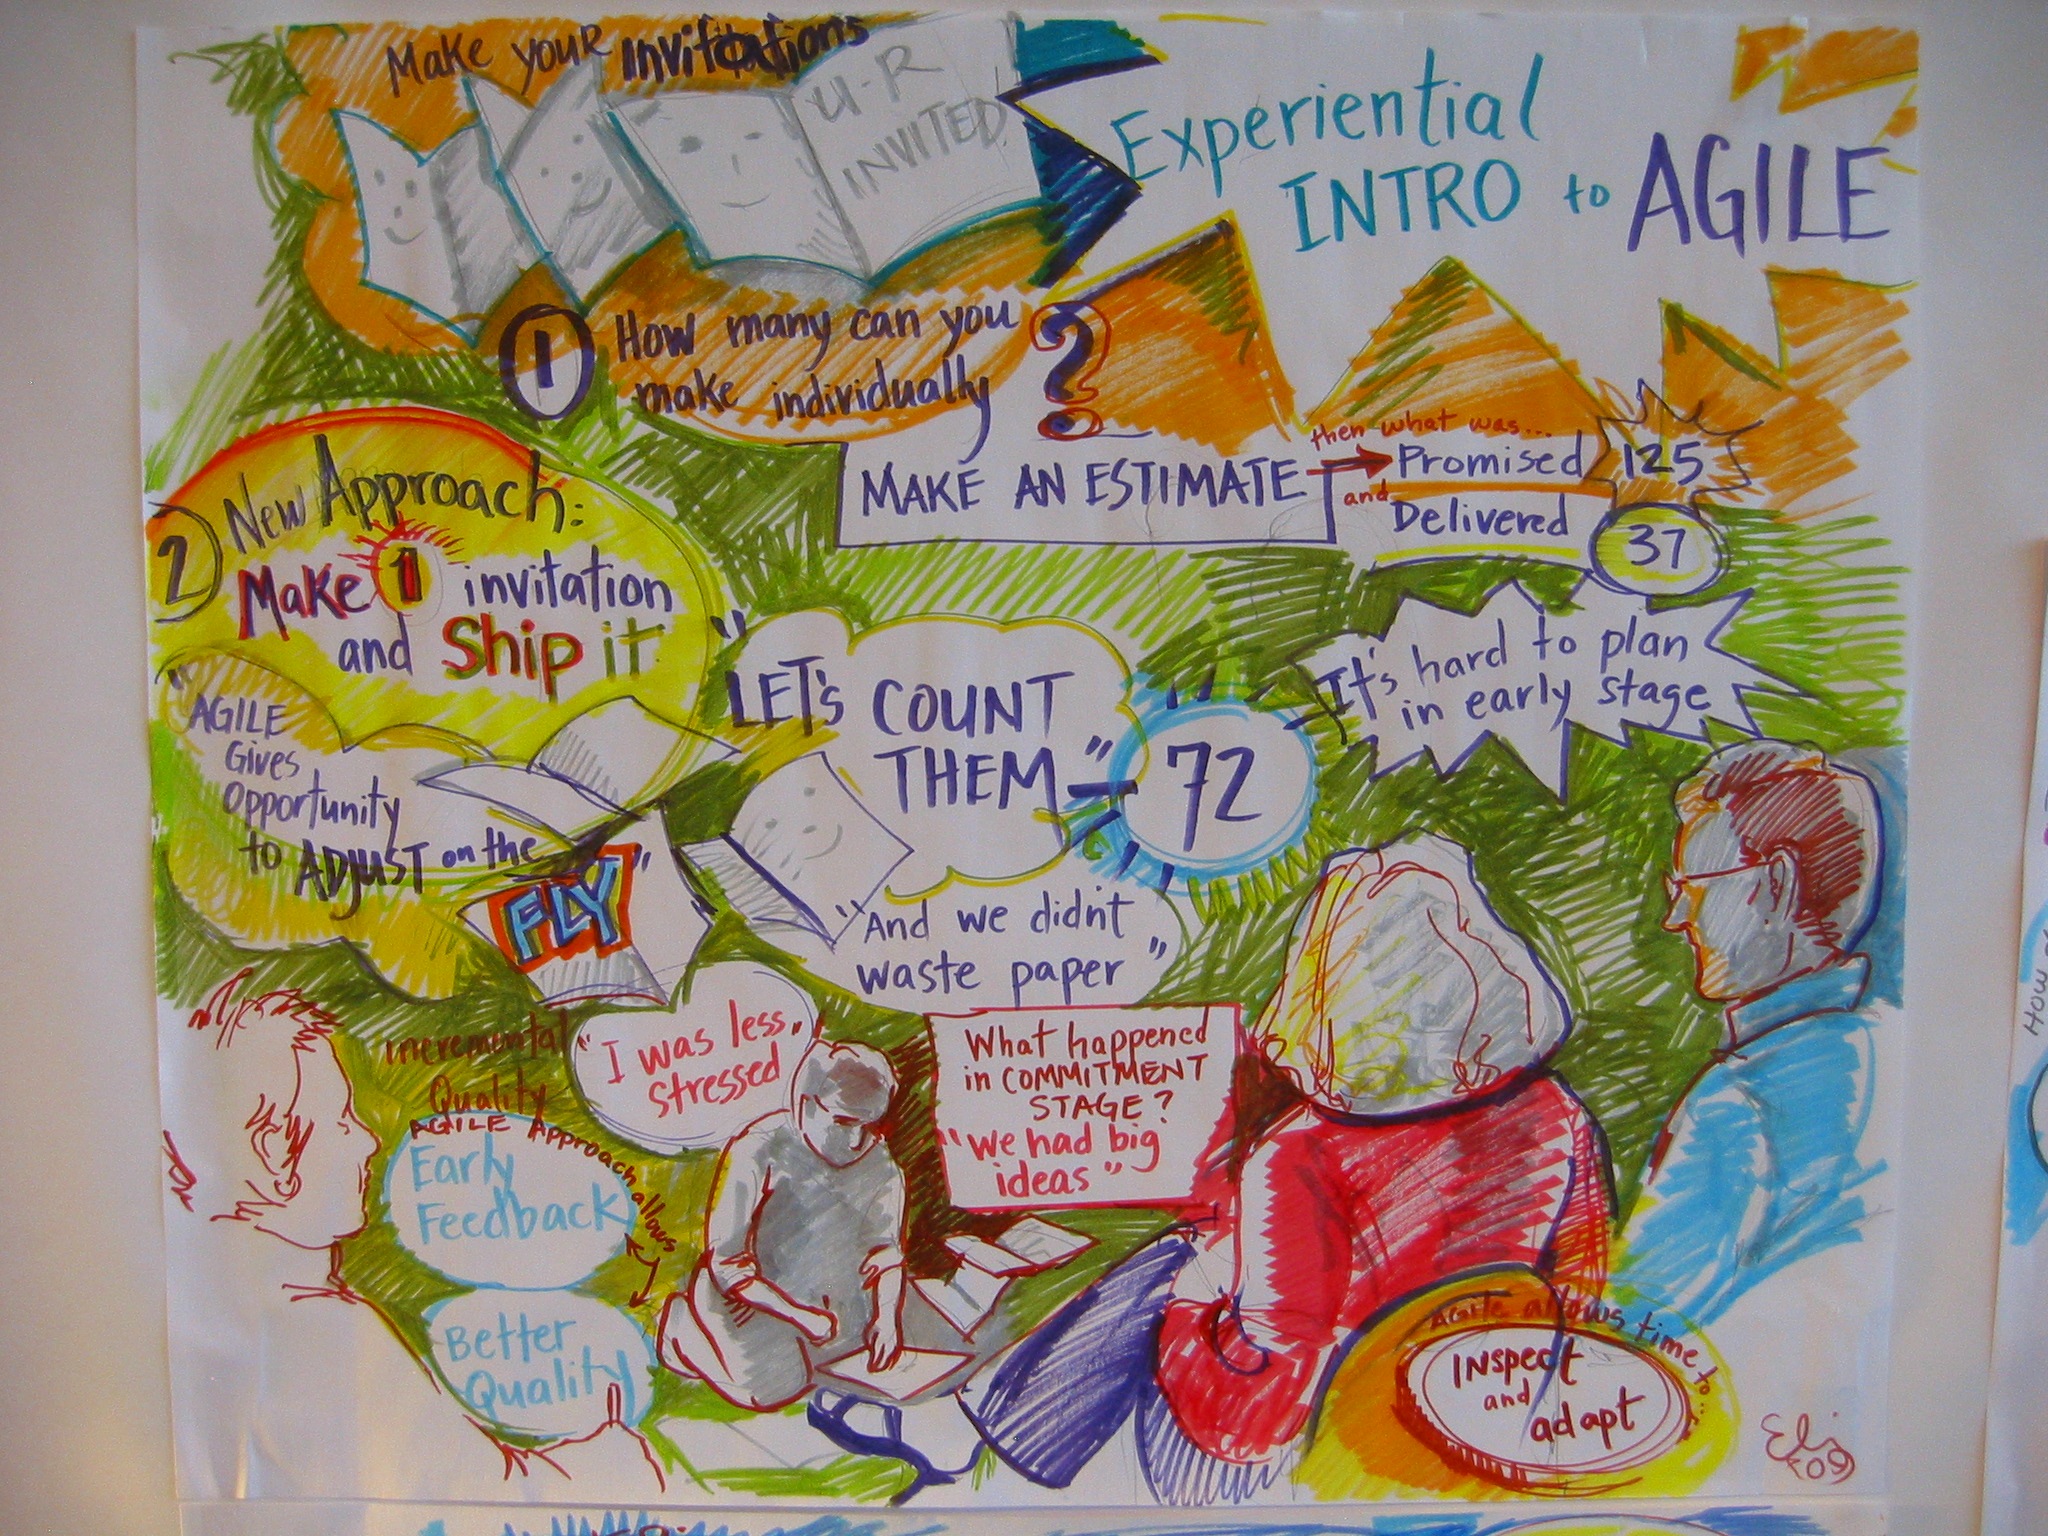 Make your invitations
U-R
INVITED
Experiential
INTRO to AGILE
1
How many can you
make individually ?
MAKE AN ESTIMATE
then what was...
Promised 125
and
Delivered 37
It's hard to plan
in early stage
2
New Approach:
Make 1 invitation
and Ship it
"AGILE
Gives
opportunity
to ADJUST on the
FLY"
"LET's COUNT
THEM" - 72
"And we didn't
waste paper"
"I was less
stressed"
What happened
in COMMITMENT
STAGE?
"we had big
ideas"
incremental
Quality
AGILE Approach allows
Early
Feedback
Better
Quality
Agile allows time to...
INspect
and
adapt
Eli
09
How